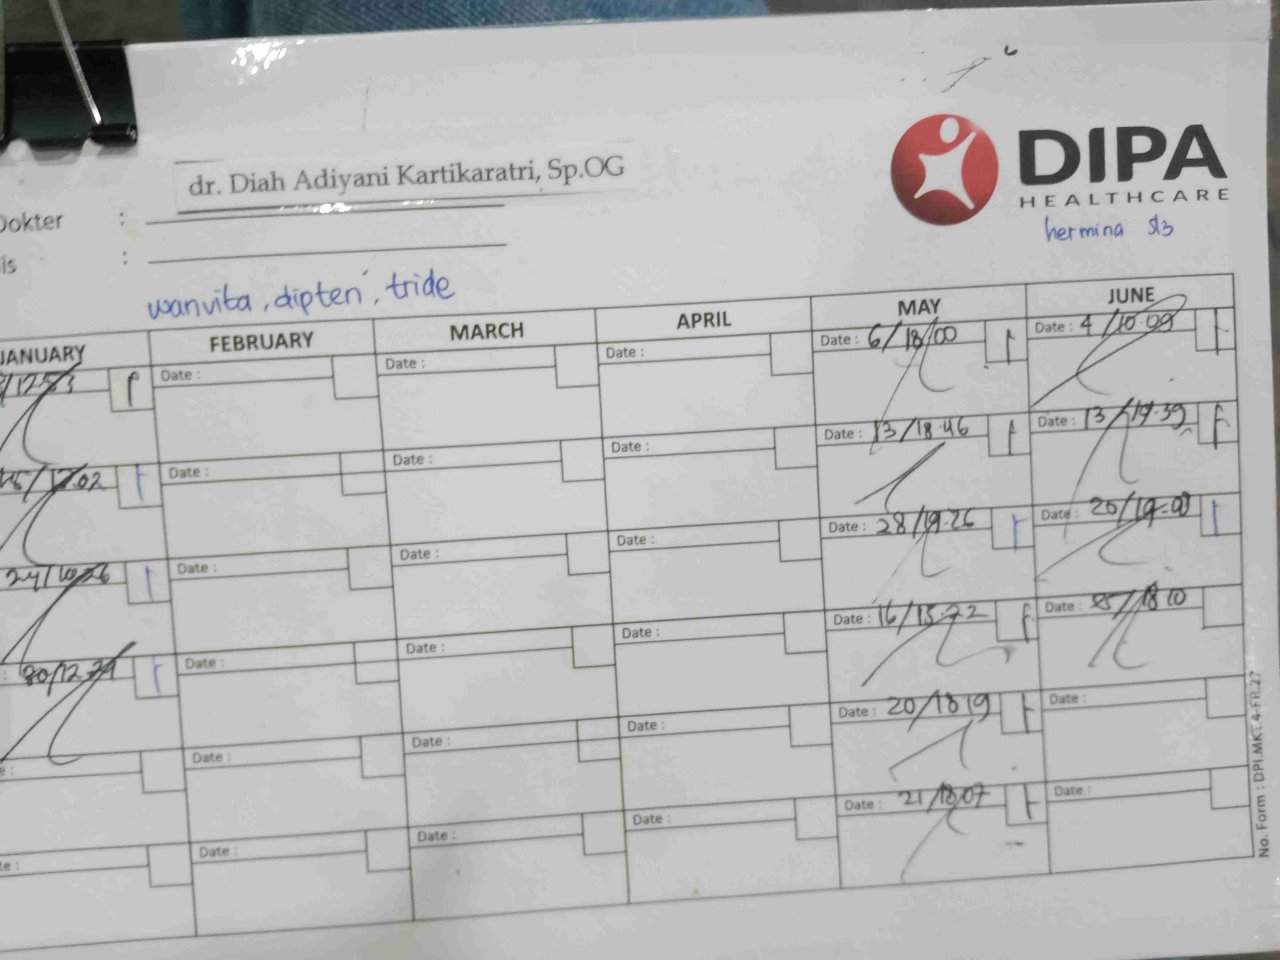 dr. Diah Adiyani Kartikaratri, Sp.OG
DIPA
HEALTHCARE
Dokter :
is :
hermina
wanvita, dipten, tride
JANUARY FEBRUARY MARCH APRIL MAY JUNE
Date : Date : Date : Date : 6/18/00 Date : 4/10.09
Date : Date : Date : Date : 13/18.46 Date : 13/19.39
24/10.26 Date : Date : Date : Date : 28/19.26 Date : 20/19.
30/12. Date : Date : Date : Date : 16/15.22 Date : /18 10
Date : Date : Date : Date : 20/18 19 Date :
Date : Date : Date : Date : 21/18 07 Date :
No. Form : DPI.MKT.4-FR.27